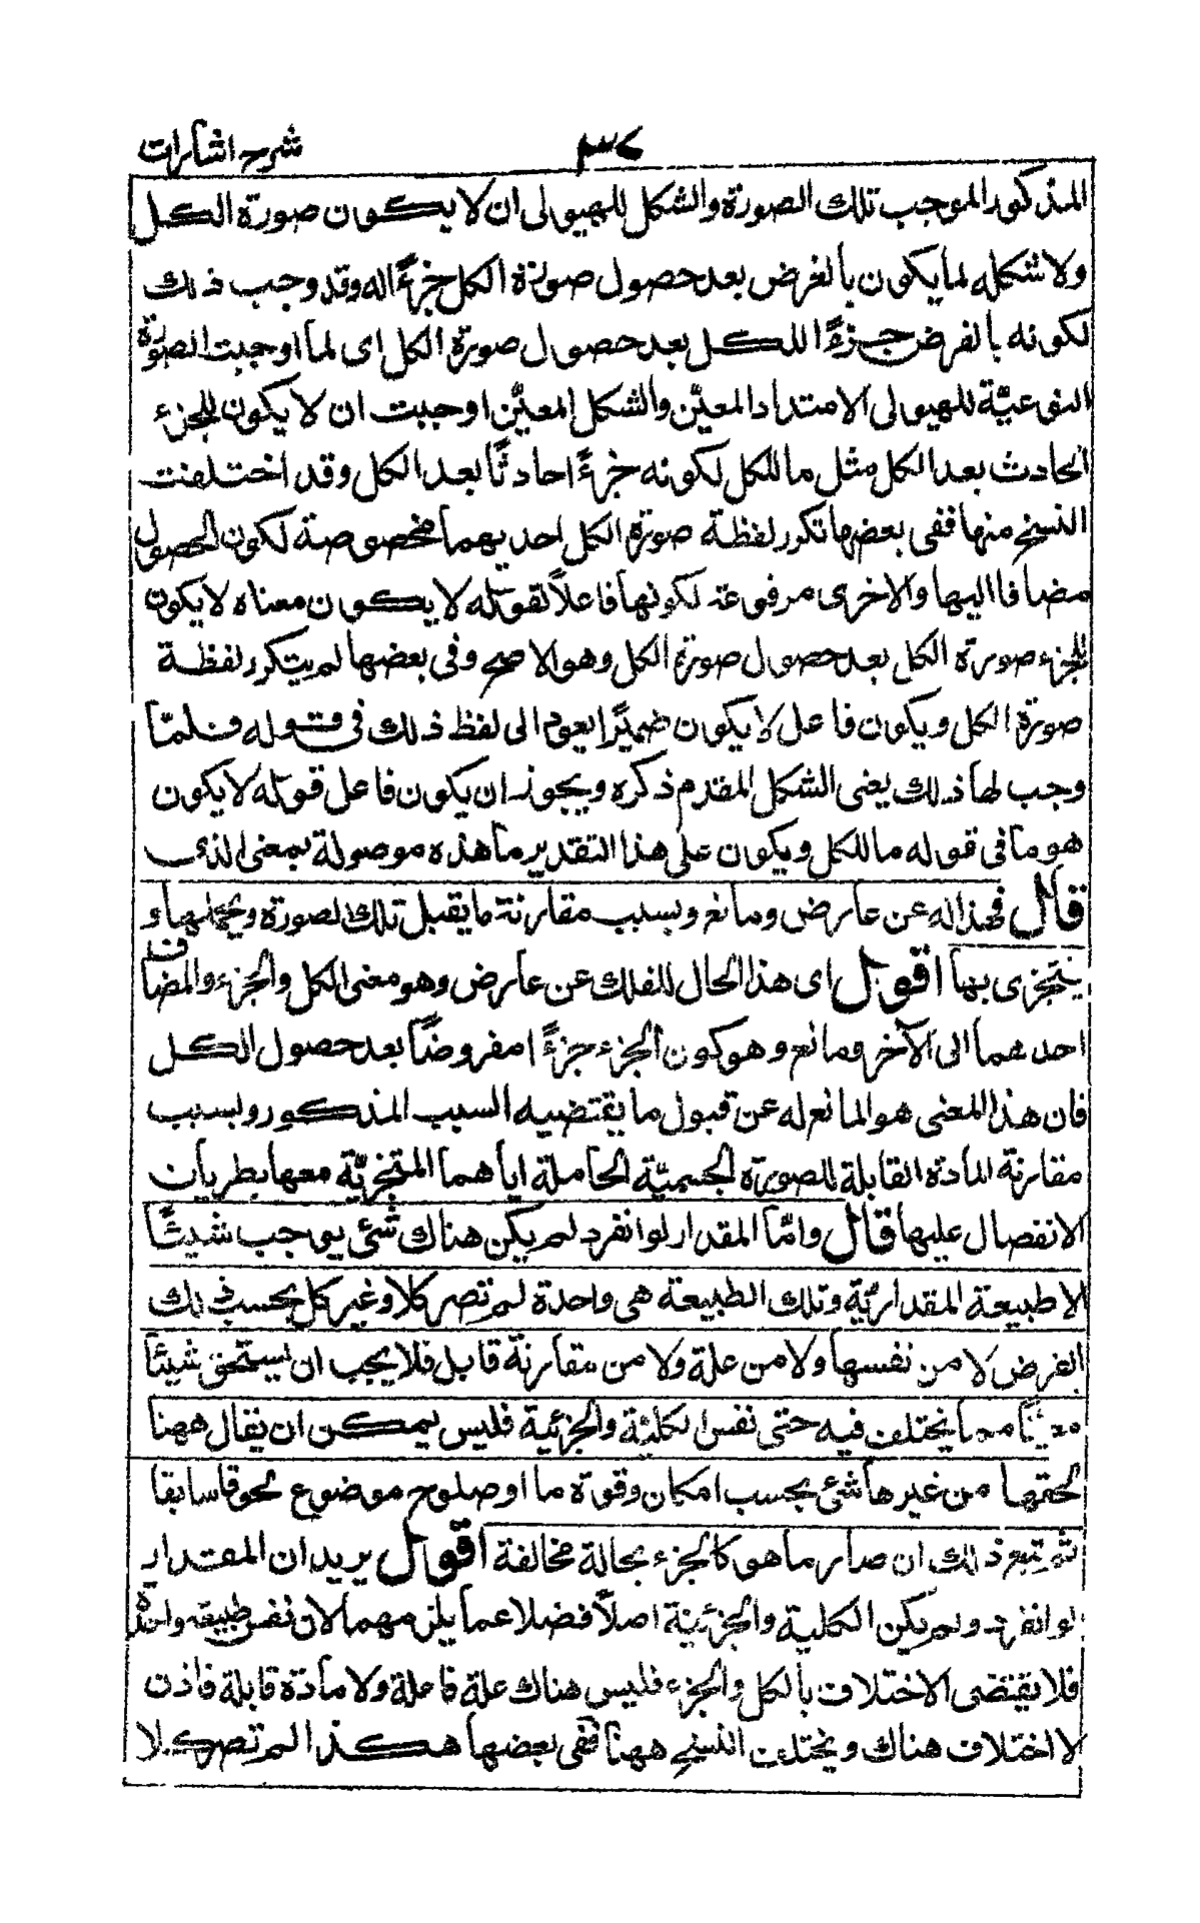 شرح اشارات
المذكور الموجب تلك الصورة والشكل للهيولى ان لا يكون صورة الكل
ولا شكله لما يكون بالفرض بعد حصول صورة الكل جزءًا له وقد وجب ذلك
لكونه بالفرض جزءًا للكل بعد حصول صورة الكل اى لما اوجبت الصورة
النوعيّة للهيولى الامتداد المعيّن والشكل المعيّن اوجبت ان لا يكون للجزء
الحادث بعد الكل مثل ما للكل لكونه جزءًا حادثًا بعد الكل وقد اختلفت
النسخ منها ففى بعضها تكرر لفظة صورة الكل احديهما مخصوصة لكون الحصول
مضافا اليها والاخرى مرفوعة لكونها فاعلًا لقوله لا يكون معناه لا يكون
للجزء صورة الكل بعد حصول صورة الكل وهو الاصح وفى بعضها لم يتكرر لفظة
صورة الكل ويكون فاعل لا يكون ضميرًا يعود الى لفظ ذلك فى قوله فلمّا
وجب لها ذلك يعنى الشكل المقدم ذكره ويجوز ان يكون فاعل قوله لا يكون
هو ما فى قوله ما للكل ويكون على هذا التقدير ما هذه موصولة بمعنى الذى
قال فهذا له عن عارض ومانع وبسبب مقارنة ما يقبل تلك الصورة ويحملها و
يتجزى بها اقول اى هذا الحال للفلك عن عارض وهو معنى الكل والجزء والمضاف
احدهما الى الآخر ومانع وهو كون الجزء جزءًا مفروضًا بعد حصول الكل
فان هذا المعنى هو المانع له عن قبول ما يقتضيه السبب المذكور وبسبب
مقارنة المادة القابلة للصورة الجسميّة الحاملة اياهما المتجزيّة معها بطريان
الانفصال عليها قال وامّا المقدار لو انفرد لم يكن هناك شئ يوجب شيئًا
الا طبيعة المقداريّة وتلك الطبيعة هى واحدة لم تصر كلا وغير كل بحسب ذلك
الفرض لا من نفسها ولا من علة ولا من مقارنة قابل فلا يجب ان يستحق شيئًا
معينًا مما يختلف فيه حتى نفس الكلية والجزئية فليس يمكن ان يقال ههنا
لحقها من غيرها شئ بحسب امكان وقوة ما او صلوح موضوع لحوقا سابقا
ثم تبع ذلك ان صار ما هو كالجزء بحالة مخالفة اقول يريد ان المقدار
لو انفرد ولم يكن الكلية والجزئية اصلًا فضلا عما يلزمهما لان نفس طبيعة واحدة
فلا تقتضى الاختلاف بالكل والجزء فليس هناك علة فاعلة ولا مادة قابلة فاذن
لا اختلاف هناك ويختلف النسخ ههنا ففى بعضها هكذا لم تصر كلا